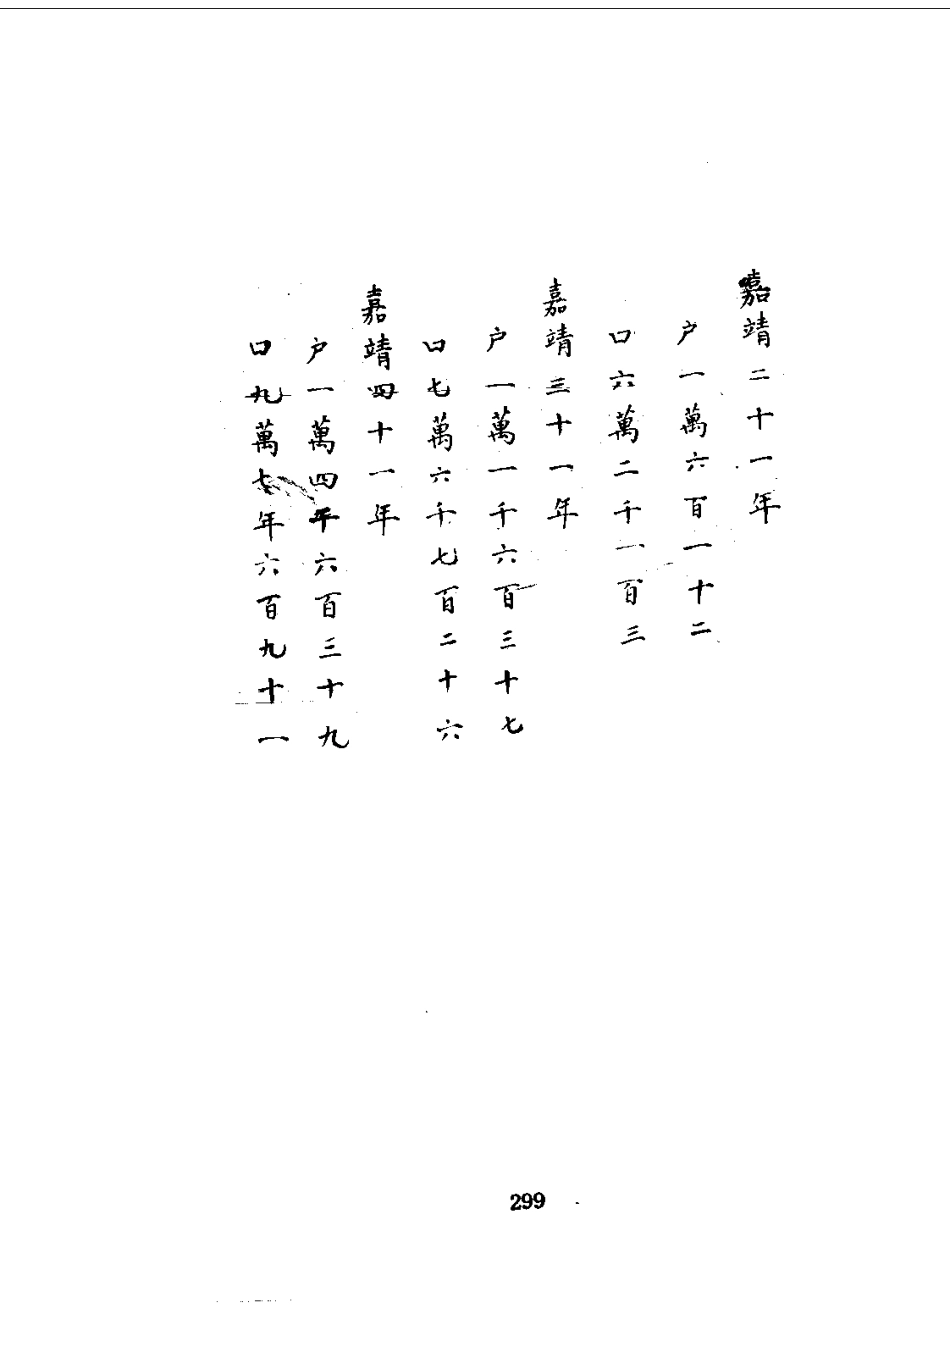 嘉靖二十一年
户一萬六百一十二
口六萬二千一百三
嘉靖三十一年
户一萬一千六百三十七
口七萬六千七百二十六
嘉靖四十一年
户一萬四千六百三十九
口九萬七年六百九十一
299